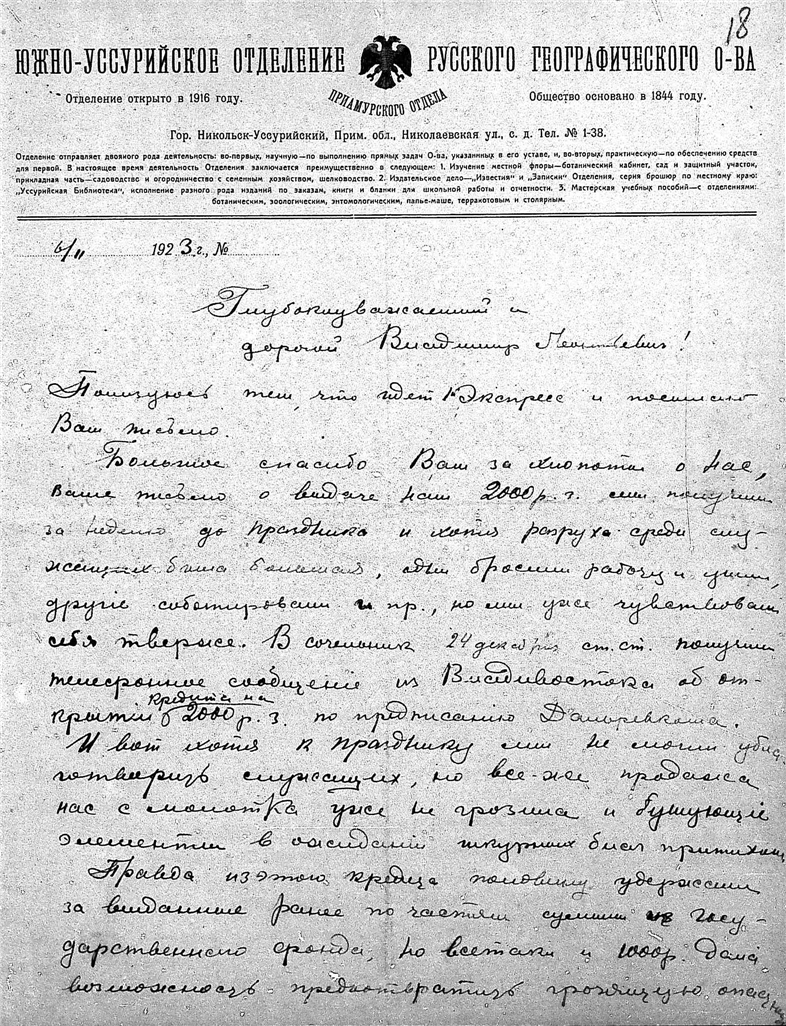 18
ЮЖНО-УССУРИЙСКОЕ ОТДЕЛЕНИЕ РУССКОГО ГЕОГРАФИЧЕСКОГО О-ВА
ПРИАМУРСКОГО ОТДЕЛА
Отделение открыто в 1916 году. Общество основано в 1844 году.
Гор. Никольск-Уссурийский, Прим. обл., Николаевская ул., с. д. Тел. № 1-38.
Отделение отправляет двоякого рода деятельность: во-первых, научную—по выполнению прямых задач О-ва, указанных в его уставе, и, во-вторых, практическую—по обеспечению средств
для первой. В настоящее время деятельность Отделения заключается преимущественно в следующем: 1. Изучение местной флоры—ботанический кабинет, сад и защитный участок,
прикладная часть—садоводство и огородничество с семенным хозяйством, шелководство. 2. Издательское дело—„Известия" и „Записки" Отделения, серия брошюр по местному краю:
"Уссурийская Библиотека", исполнение разного рода изданий по заказам, книги и бланки для школьной работы и отчетности. 3. Мастерская учебных пособий—с отделениями:
ботаническим, зоологическим, энтомологическим, папье-маше, терракотовым и столярным.
6/II 1923 г., №
Глубокоуважаемый и
дорогой Владимир Леонтьевич!
Пользуюсь тем, что идет Экспресс и посылаю
Вам письмо.
Большое спасибо Вам за хлопоты о нас,
Ваше письмо о выдаче нам 2000 р. з. мы получили
за неделю до праздника и хотя разруха среди слу-
жащих была большая, одни бросили работу и ушли,
другие саботировали и пр., но мы уже чувствовали
себя тверже. В сочельник 24 декабря ст. ст. получили
телефонное сообщение из Владивостока об от-
крытии кредита на 2000 р. з. по предписанию Дальревкома.
И вот хотя к празднику мы не могли убла-
готворить служащих, но все-же продажа
нас с молотка уже не грозила и бушующие
элементы в ожидании шкурных благ притихли
Правда из этого кредита половину удержали
за выданные ранее по частям суммы из госу-
дарственного фонда, но всетаки и 1000р. дала
возможность предотвратить грозящую